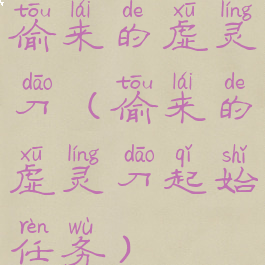 tōu lái de xū líng
偷来的虚灵
dāo tōu lái de
刀(偷来的
xū líng dāo qǐ shǐ
虚灵刀起始
rèn wù
任务)